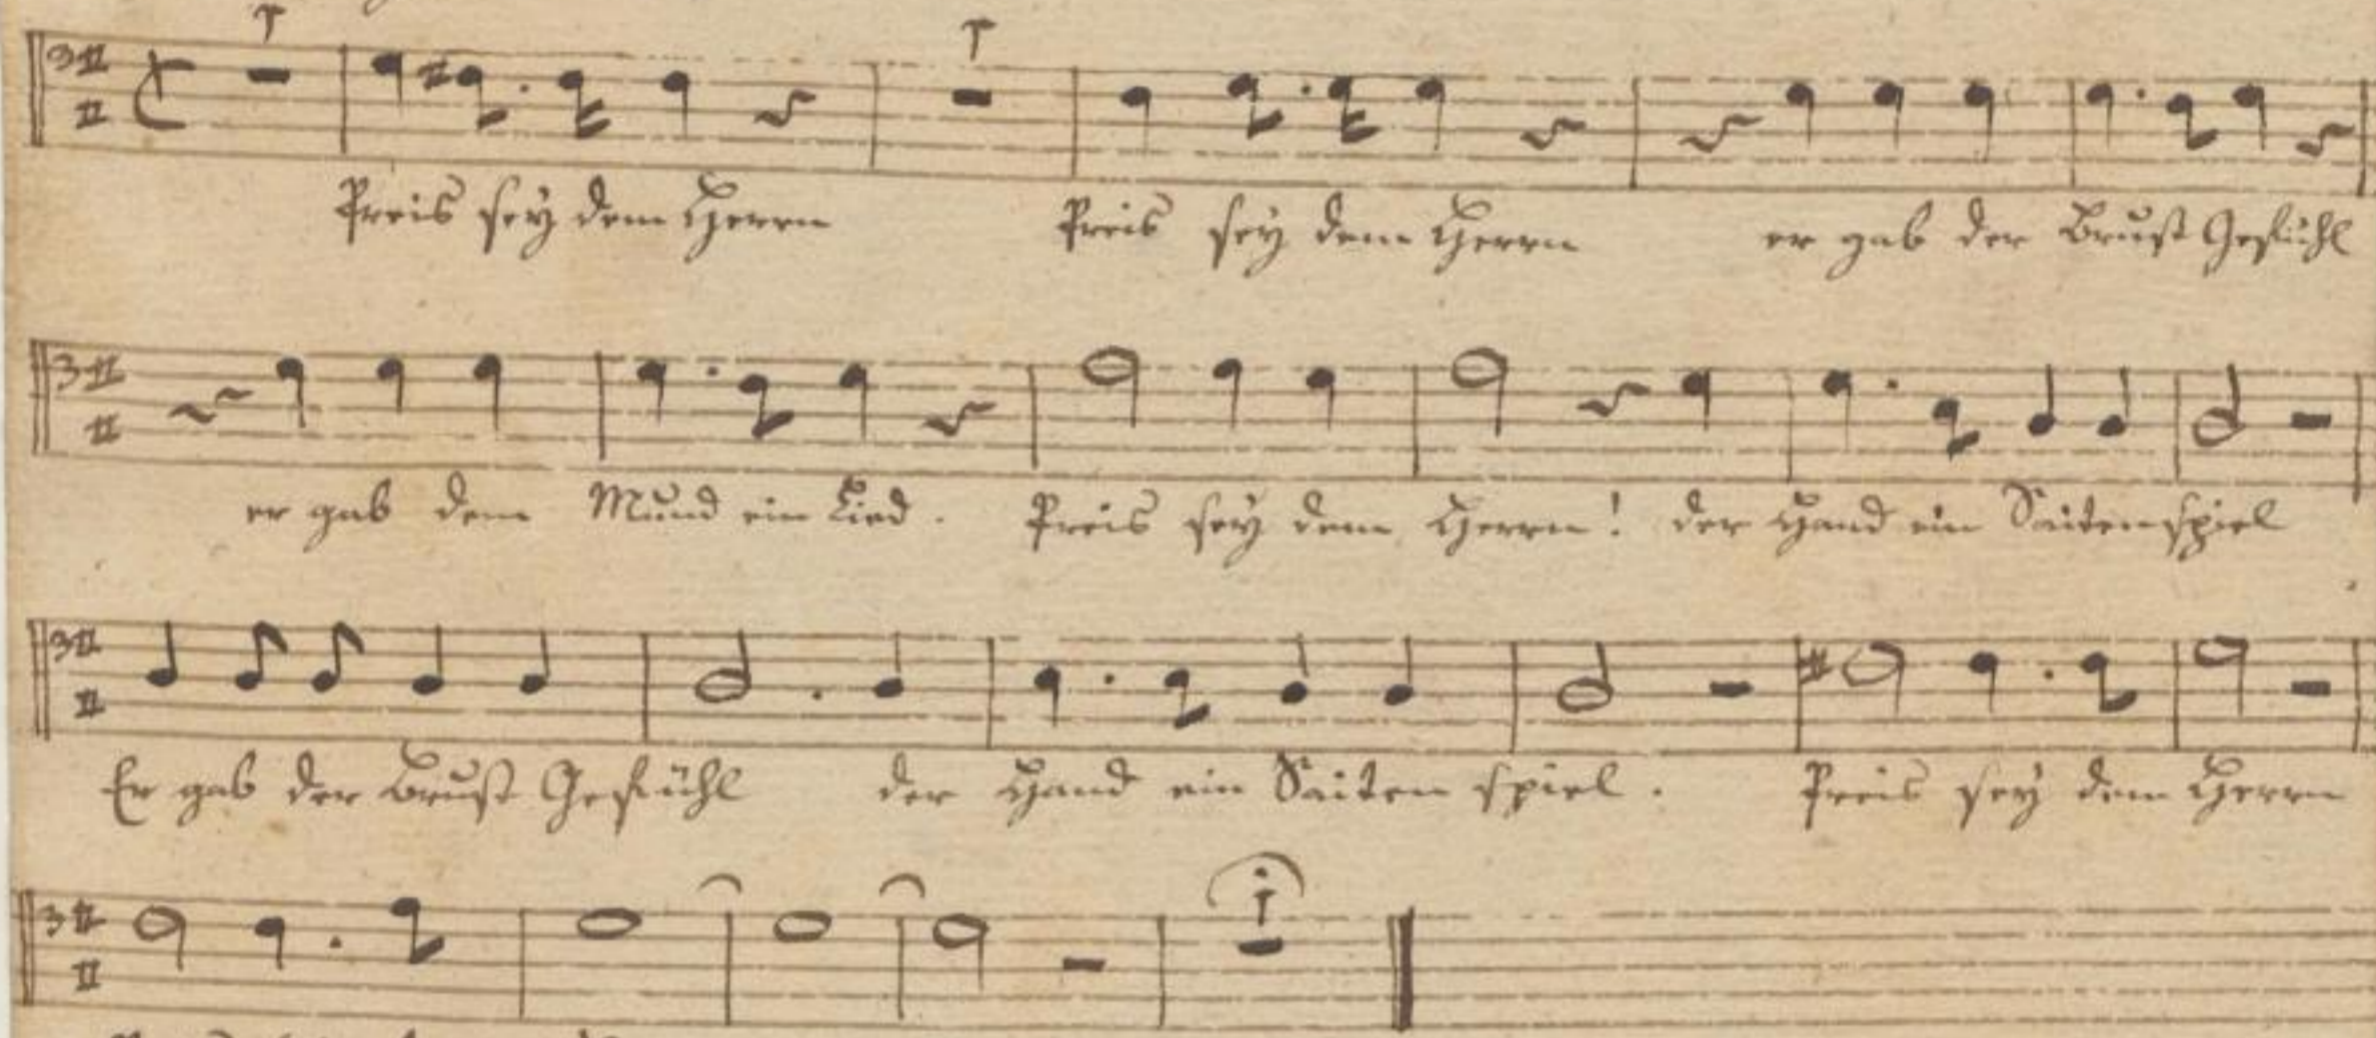 Preis sey dem Herrn Preis sey dem Herrn er gab der Brust Gefühl
er gab dem Mund ein Lied. Preis sey dem Herrn! der Hand ein Saitenspiel
Er gab der Brust Gefühl der Hand ein Saiten spiel. Preis sey dem Herrn